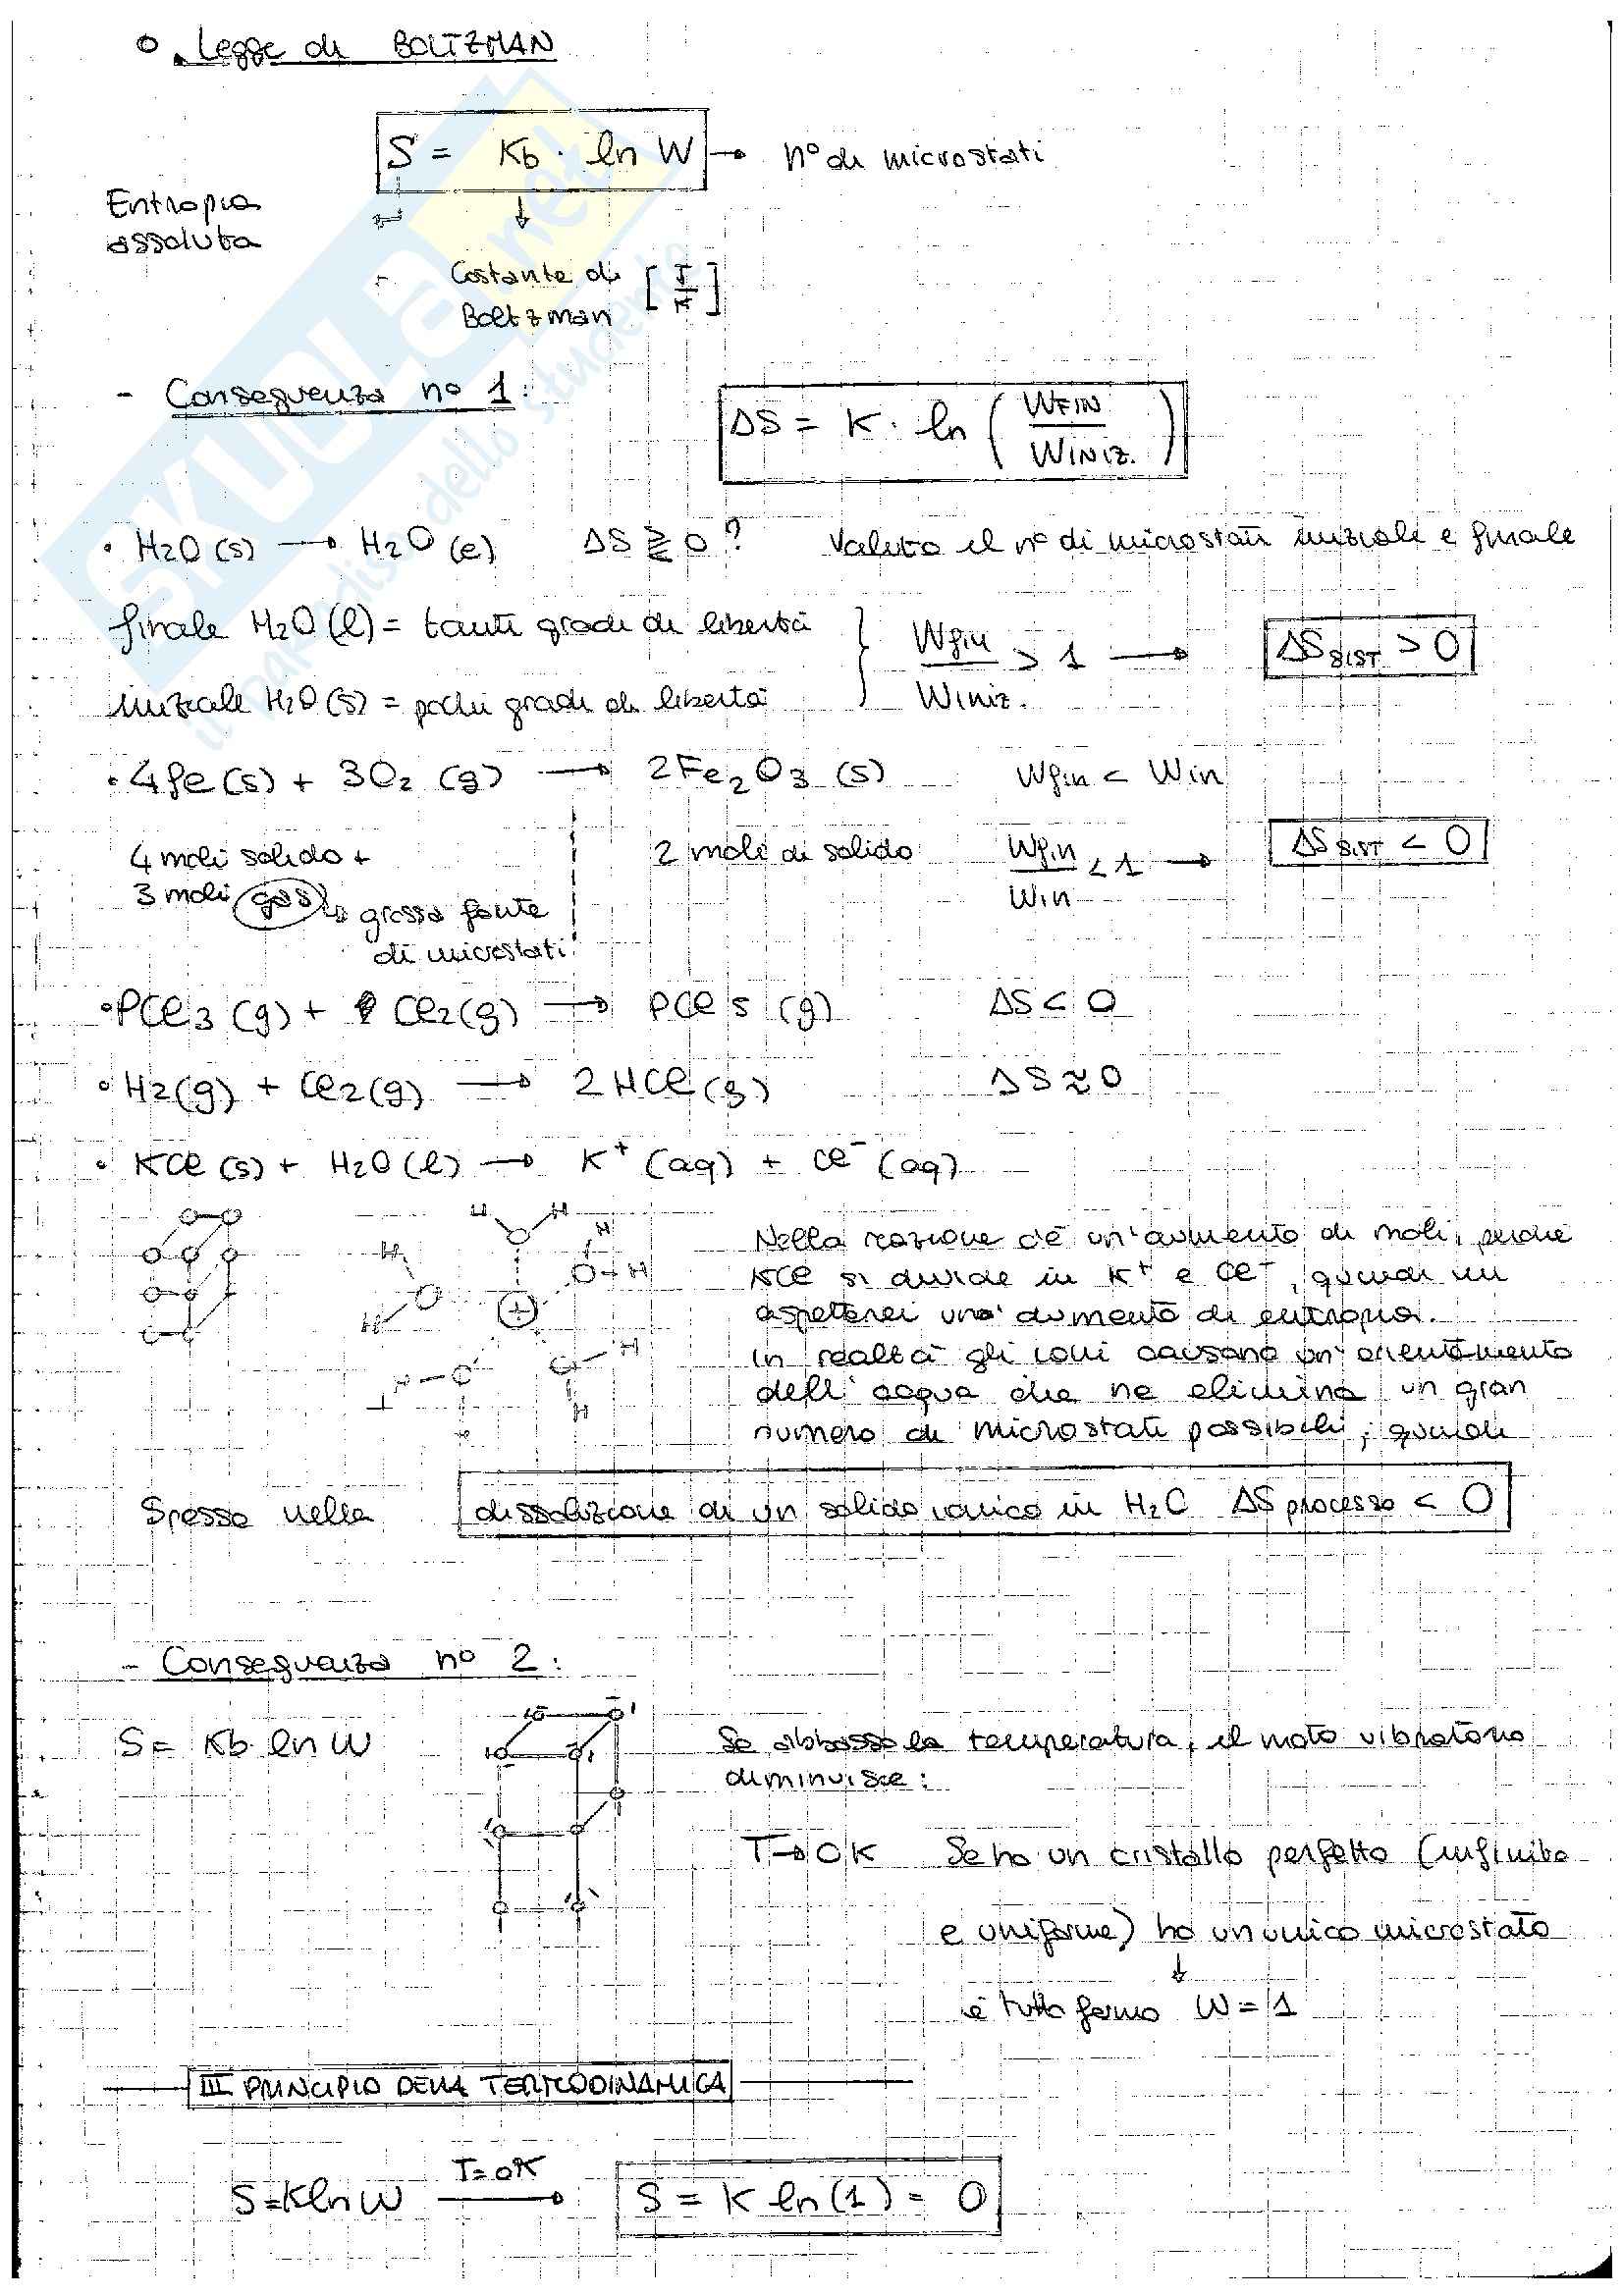 Legge di BOLTZMAN
S = Kb · ln W → n° di microstati
Entropia
assoluta
Costante di [J/K]
Boltzman
- Conseguenza n° 1:
ΔS = K · ln (WFIN / WINIZ.)
• H2O (s) → H2O (l) ΔS ≷ 0? Valuto il n° di microstati iniziale e finale
finale H2O (l) = tanti gradi di libertà
iniziale H2O (s) = pochi gradi di libertà
Wfin / Winiz. > 1 → ΔS SIST > 0
• 4Fe (s) + 3O2 (g) → 2Fe2O3 (s) Wfin < Win
4 moli solido + 2 moli di solido Wfin / Win < 1 → ΔS SIST < 0
3 moli gas ↳ grossa fonte
di microstati
• PCl3 (g) + Cl2 (g) → PCl5 (g) ΔS < 0
• H2 (g) + Cl2 (g) → 2HCl (g) ΔS ≈ 0
• KCl (s) + H2O (l) → K+ (aq) + Cl- (aq)
Nella reazione c'è un'aumento di moli, perché
KCl si divide in K+ e Cl-, quindi mi
aspetterei un' aumento di entropia.
In realtà gli ioni causano un' orientamento
dell' acqua che ne elimina un gran
numero di microstati possibili, quindi
Spesso nella dissoluzione di un solido ionico in H2O ΔS processo < 0
- Conseguenza n° 2:
S = Kb ln W
Se abbasso la temperatura, il moto vibratorio
diminuisce:
T → 0 K Se ho un cristallo perfetto (infinito
e uniforme) ho un unico microstato
↓
è tutto fermo W = 1
III PRINCIPIO DELLA TERMODINAMICA
S = K ln W T=0K → S = K ln (1) = 0
SKUOLA.net
il paradiso dello studente